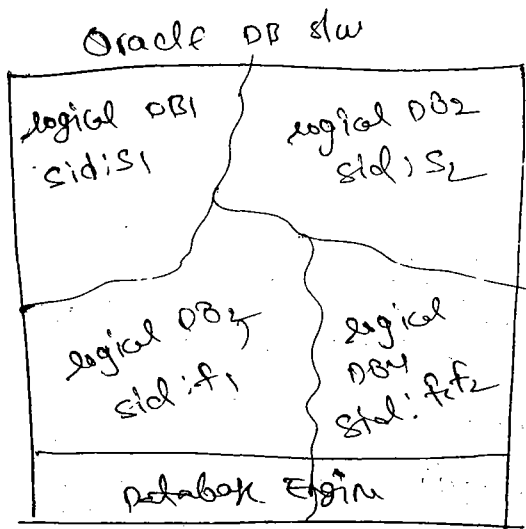 Oracle DB s/w
logical DB1
sid: S1
logical DB2
sid: S2
logical DB3
sid: f1
logical
DB4
sid: f2
Database Engine